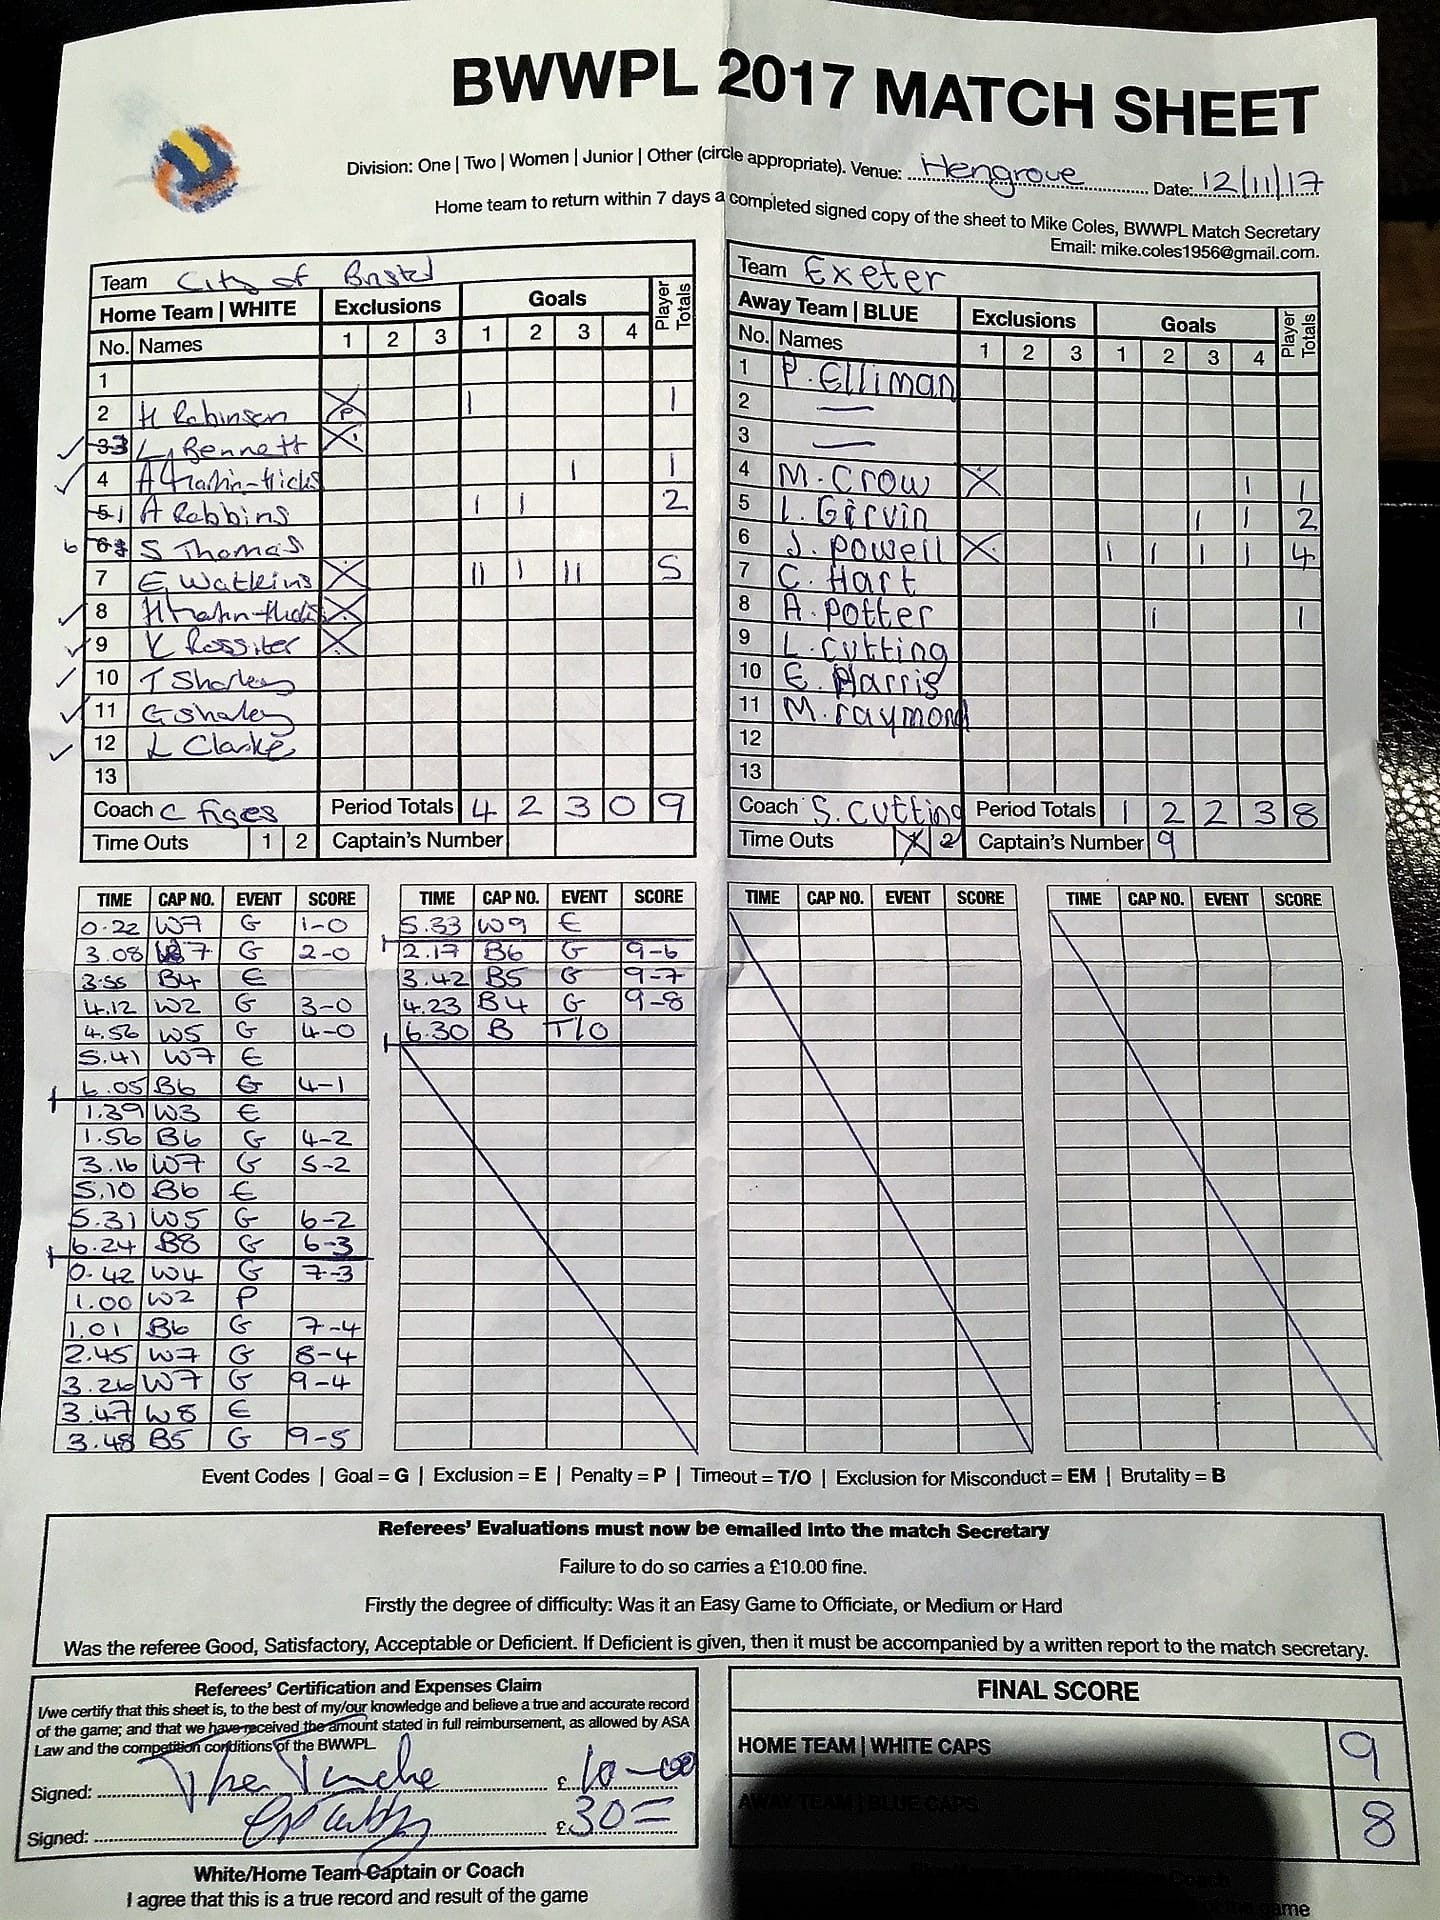 BWWPL 2017 MATCH SHEET
Division: One | Two | Women | Junior | Other (circle appropriate). Venue: Hengrove Date: 12/11/17
Home team to return within 7 days a completed signed copy of the sheet to Mike Coles, BWWPL Match Secretary
Email: mike.coles1956@gmail.com.
Team City of Bristol
Home Team | WHITE Exclusions Goals Player Totals
No. Names 1 2 3 1 2 3 4
1
2 H Robinson P 1 1
3 L Bennett
4 A 1 1
5 1 A Robbins 1 1 2
6 S Thomas
7 E Watkins 11 1 11 5
8
9 K Rossiter
10 T Sharley
11 G Sharley
12 L Clarke
13
Coach C Figes Period Totals 4 2 3 0 9
Time Outs 1 2 Captain's Number
Team Exeter
Away Team | BLUE Exclusions Goals Player Totals
No. Names 1 2 3 1 2 3 4
1 P. Elliman
2 —
3 —
4 M. Crow X 1 1
5 L. Girvin 1 1 2
6 J. Powell X 1 1 1 1 4
7 C. Hart
8 A. Potter 1 1
9 L. Cutting
10 E. Harris
11 M. raymond
12
13
Coach S. Cutting Period Totals 1 2 2 3 8
Time Outs 1 2 Captain's Number 9
TIME CAP NO. EVENT SCORE
0.22 W7 G 1-0
3.08 W7 G 2-0
3.55 B4 E
4.12 W2 G 3-0
4.56 W5 G 4-0
5.41 W7 E
6.05 B6 G 4-1
1.39 W3 E
1.56 B6 G 4-2
3.16 W7 G 5-2
5.10 B6 E
5.31 W5 G 6-2
6.24 B8 G 6-3
0.42 W4 G 7-3
1.00 W2 P
1.01 B6 G 7-4
2.45 W7 G 8-4
3.26 W7 G 9-4
3.47 W8 E
3.48 B5 G 9-5
TIME CAP NO. EVENT SCORE
5.33 W9 E
2.17 B6 G 9-6
3.42 B5 G 9-7
4.23 B4 G 9-8
6.30 B T/O
TIME CAP NO. EVENT SCORE
TIME CAP NO. EVENT SCORE
Event Codes | Goal = G | Exclusion = E | Penalty = P | Timeout = T/O | Exclusion for Misconduct = EM | Brutality = B
Referees' Evaluations must now be emailed into the match Secretary
Failure to do so carries a £10.00 fine.
Firstly the degree of difficulty: Was it an Easy Game to Officiate, or Medium or Hard
Was the referee Good, Satisfactory, Acceptable or Deficient. If Deficient is given, then it must be accompanied by a written report to the match secretary.
Referees' Certification and Expenses Claim
I/we certify that this sheet is, to the best of my/our knowledge and believe a true and accurate record
of the game; and that we have received the amount stated in full reimbursement, as allowed by ASA
Law and the competition conditions of the BWWPL
Signed: £ 10-00
Signed: £ 30=
White/Home Team Captain or Coach
I agree that this is a true record and result of the game
FINAL SCORE
HOME TEAM | WHITE CAPS 9
AWAY TEAM | BLUE CAPS 8
game